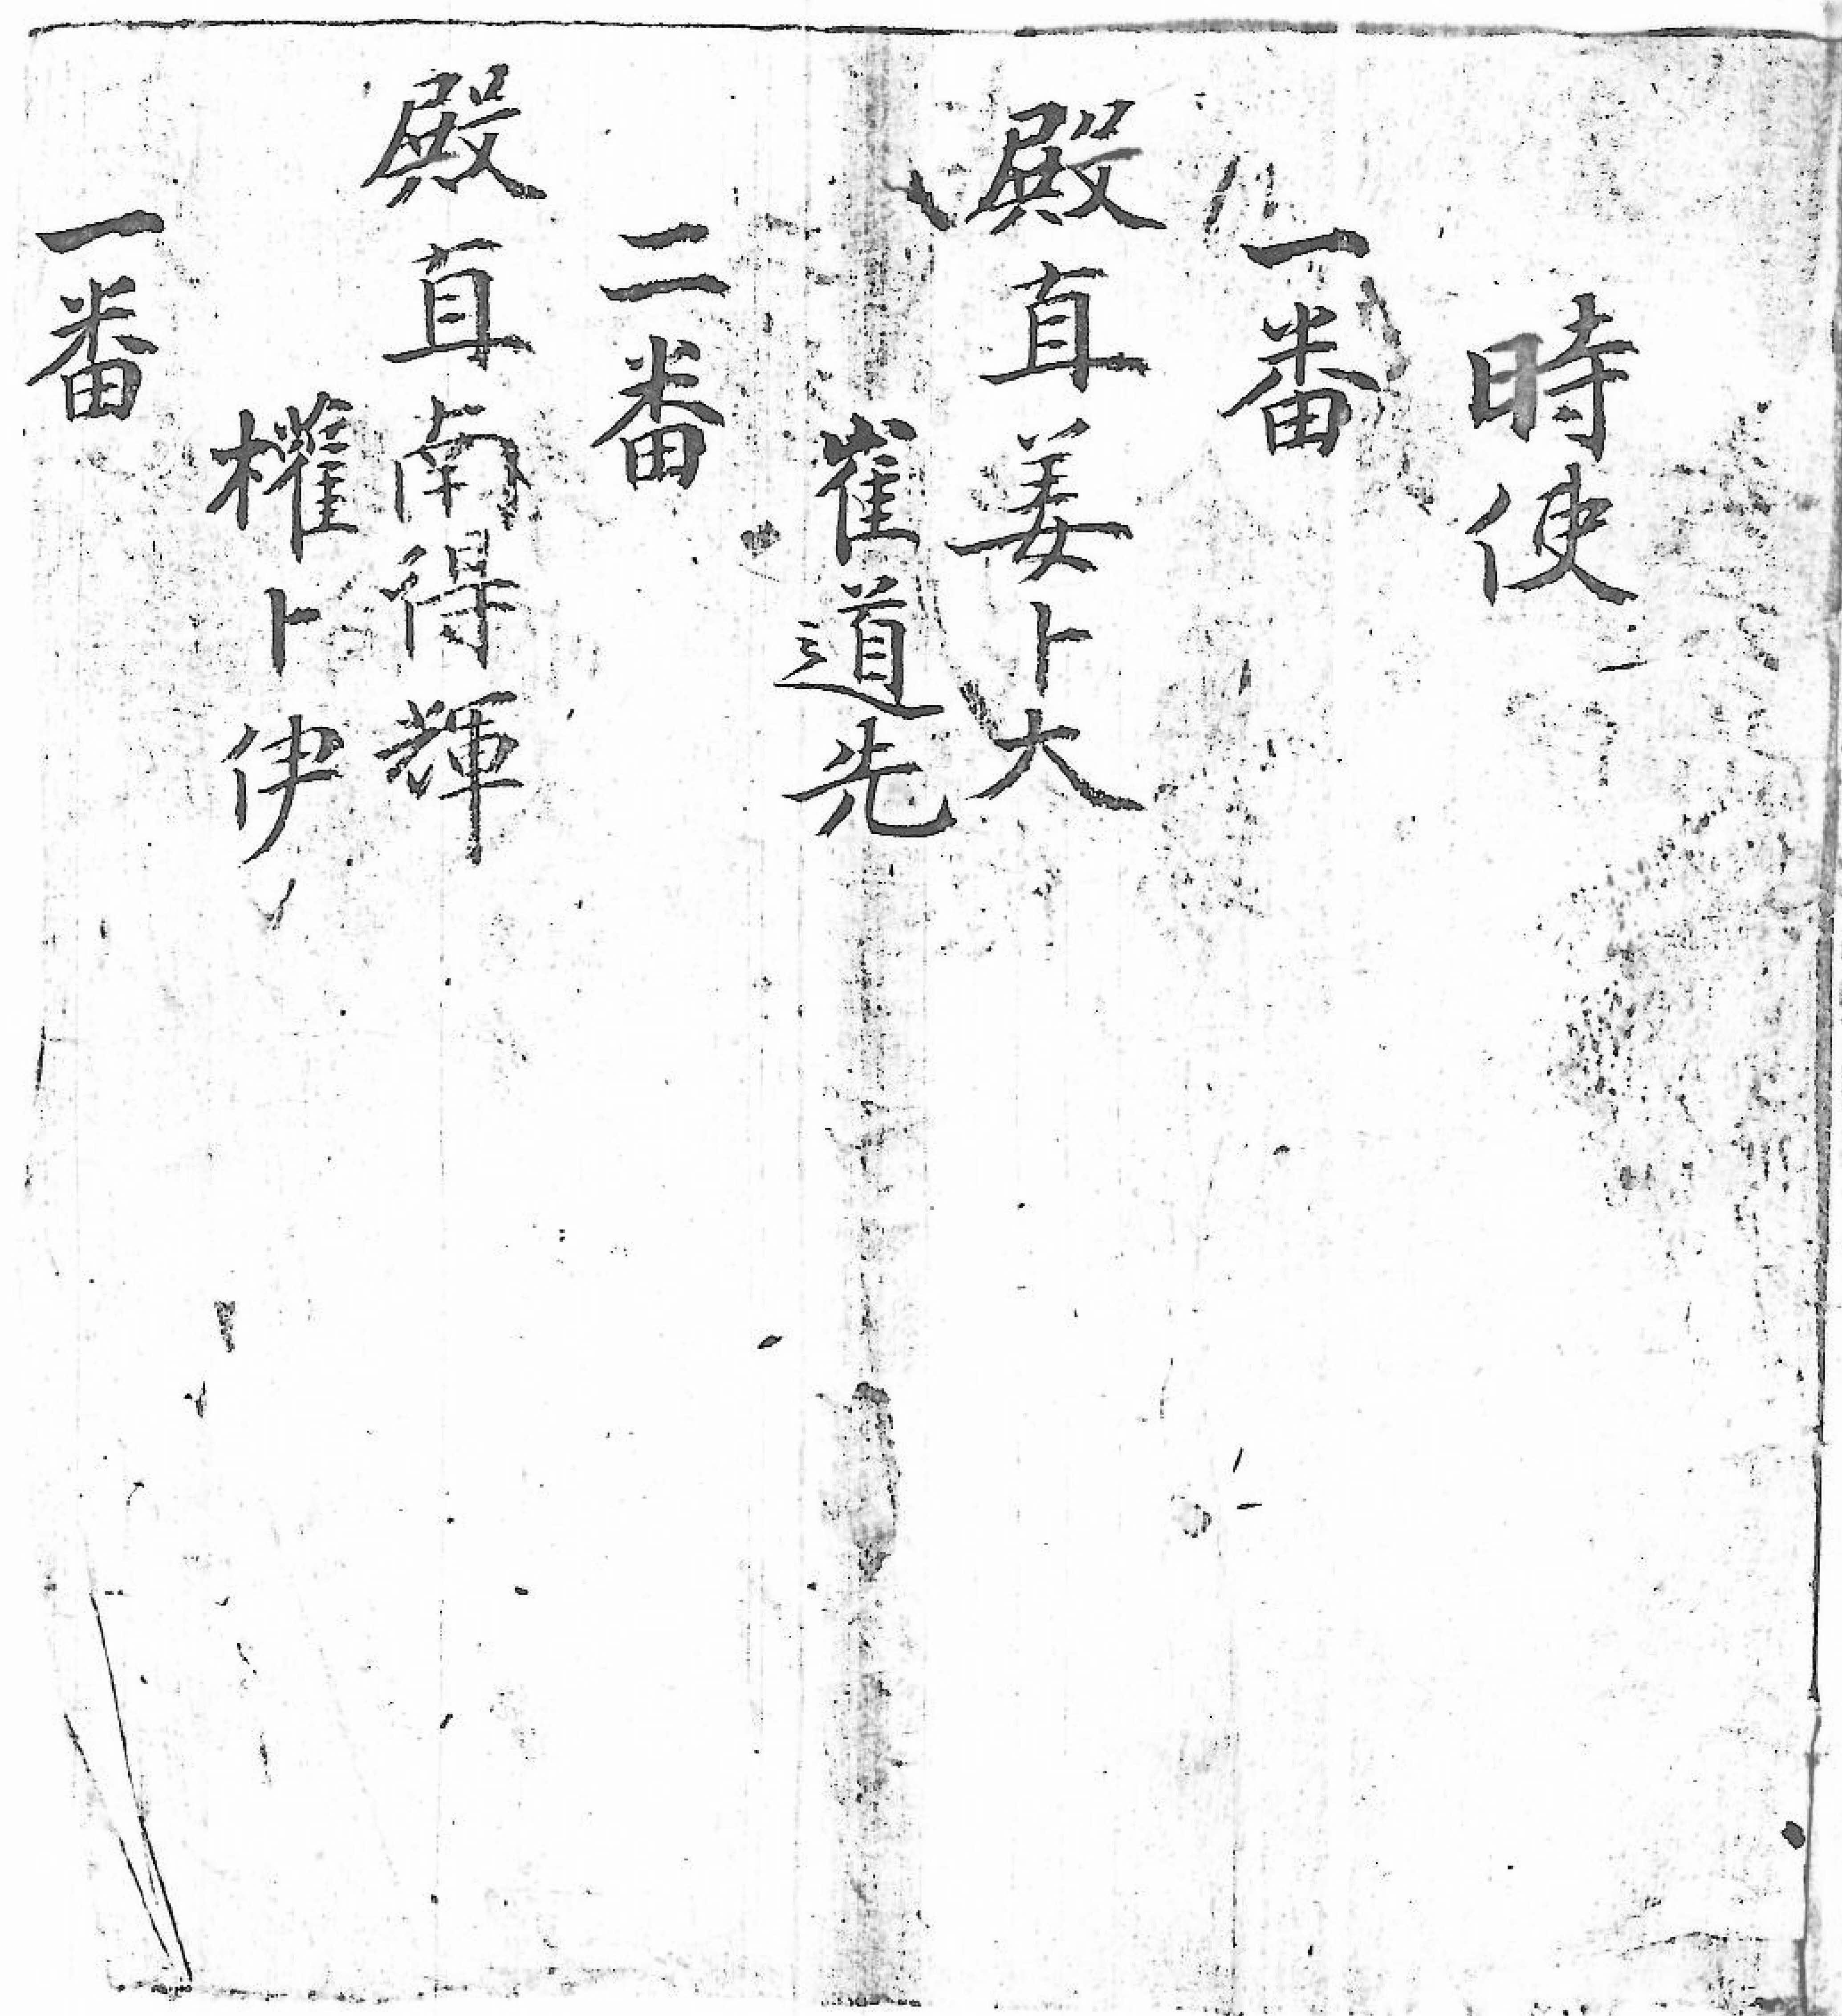 時使
一番
殿直姜卜大
崔道先
二番
殿直南得輝
權卜伊
一番